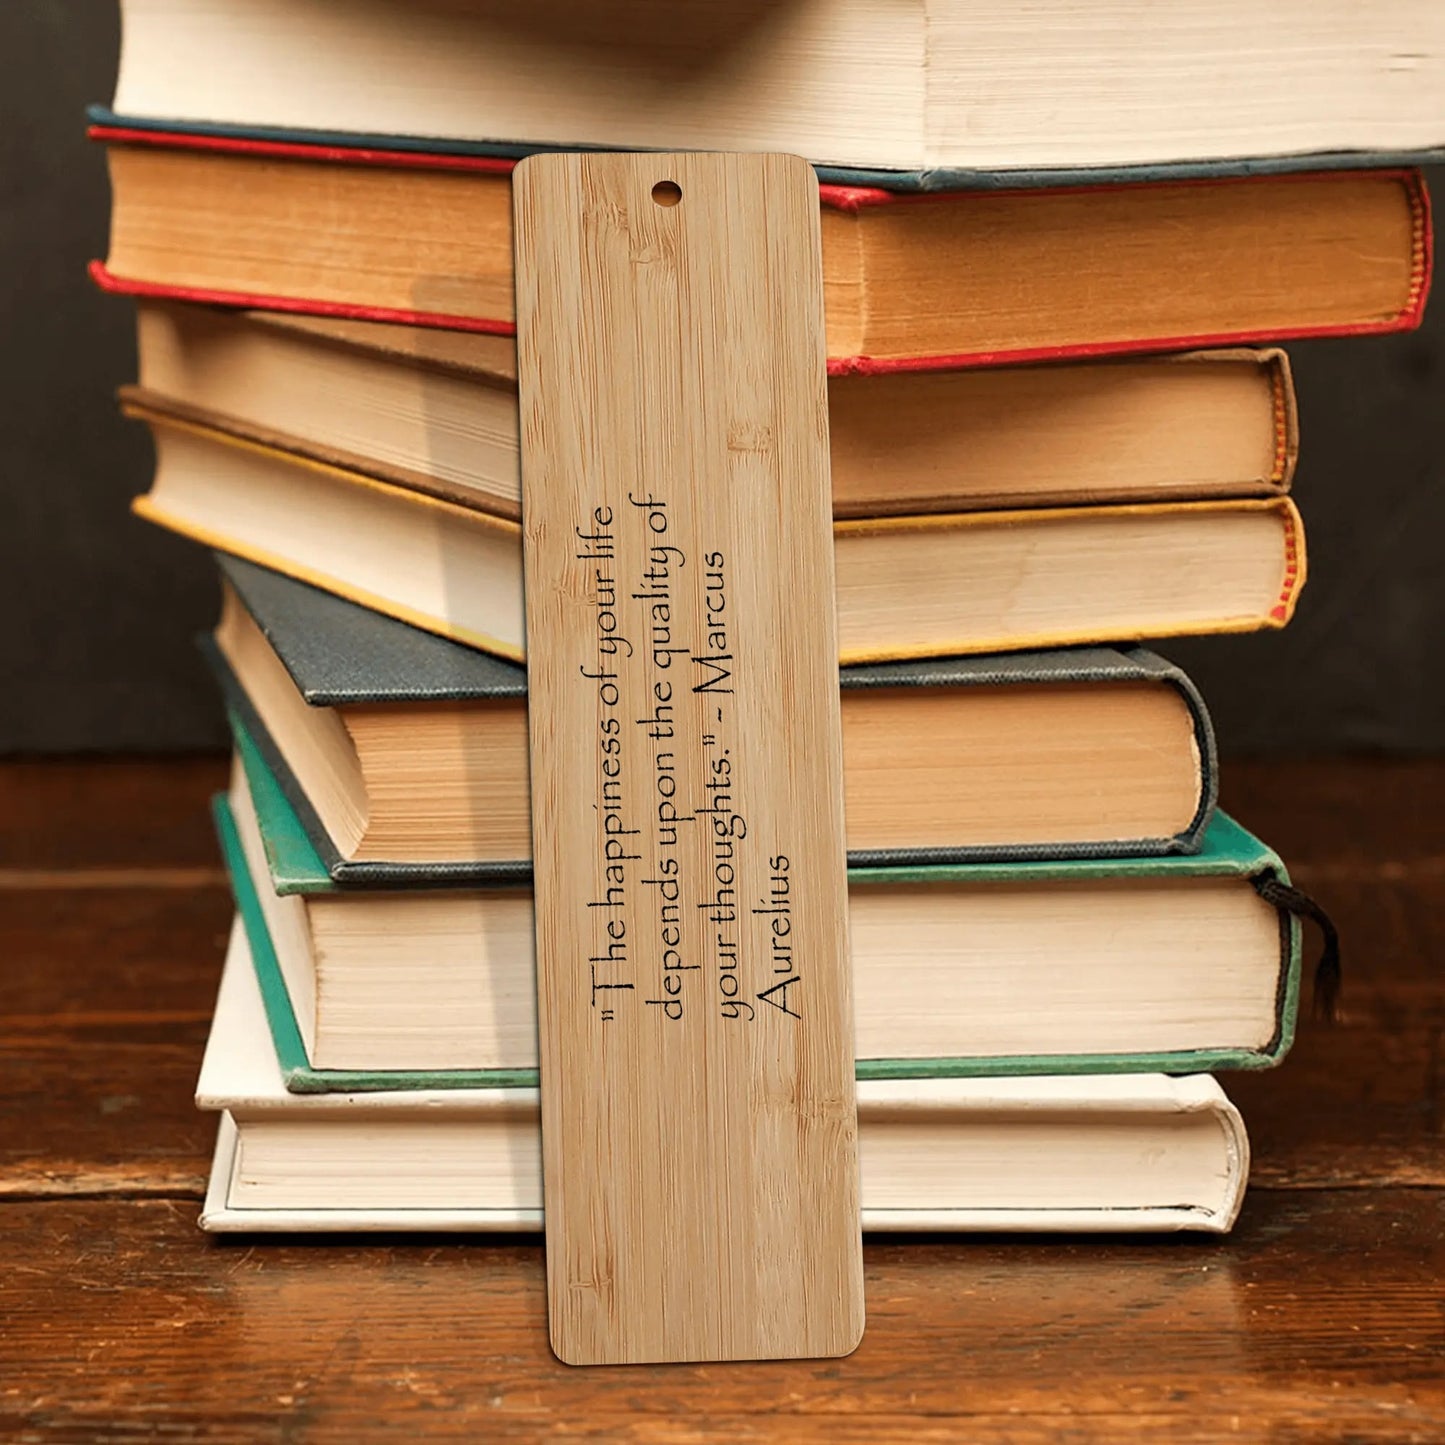 "The happiness of your life
depends upon the quality of
your thoughts." ~ Marcus
Aurelius